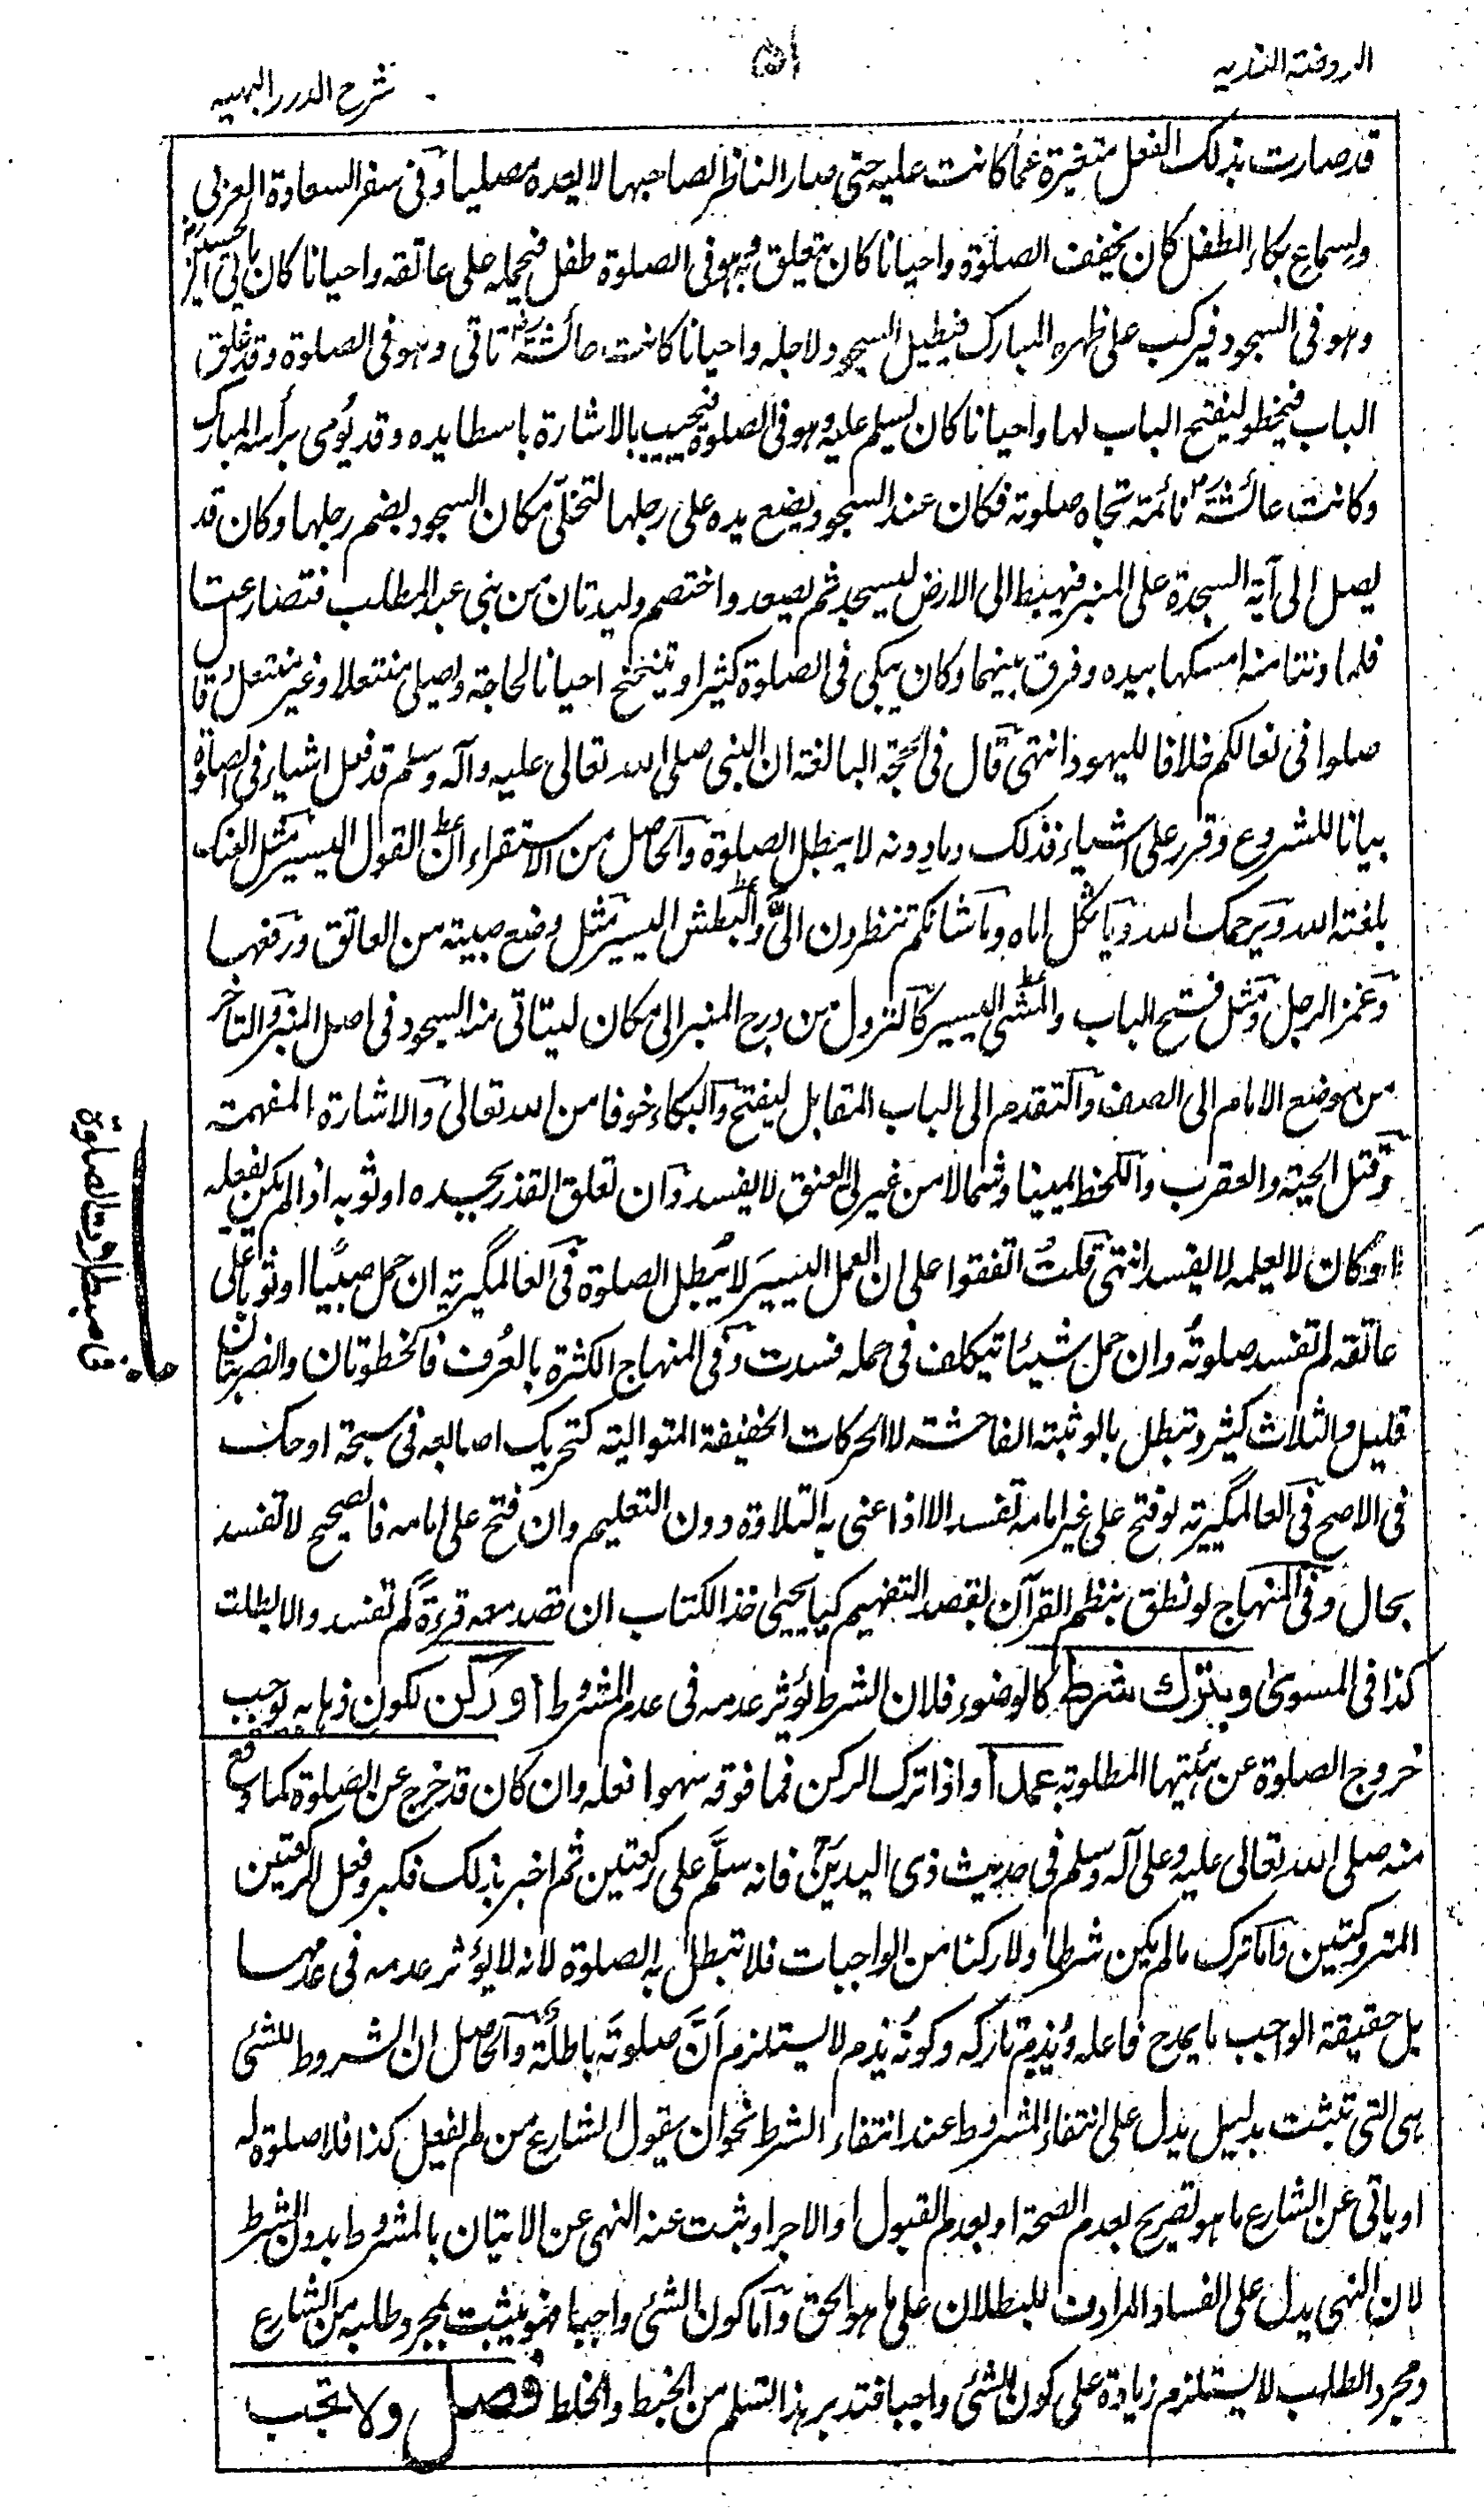 الروضة الندیہ
۵۱
شرح الدرر البہیہ
قد صارت بذلک الفعل متغیرة عما کانت علیہ حتی صار الناظر لصاحبہا لا یعدہ مصلیا وفی سفر السعادة العربی
ولسماع بکاء الطفل کان یخفف الصلوة واحیانا کان یتعلق بہ وہو فی الصلوة طفل فیحملہ علی عاتقہ واحیانا کان یاتی الحسین رض
وہو فی السجود فیرکب علی ظہرہ المبارک فیطیل السجود لاجلہ واحیانا کانت عائشة رض تاتی وہو فی الصلوة وقد غلق
الباب فیخطو لیفتح الباب لہا واحیانا کان یسلم علیہ وہو فی الصلوة فیجیب بالاشارة باسطا یدہ وقد یومی برأسہ المبارک
وکانت عائشة رض نائمة تجاہ صلوتہ فکان عند السجود یضع یدہ علی رجلہا لتخلی مکان السجود بضم رجلہا وکان قد
یصل الی آیة السجدة علی المنبر فیہبط الی الارض لیسجد ثم یصعد واختصم ولیدتان من بنی عبد المطلب فتصارعتا
فلما دنتا منہ امسکہما بیدہ وفرق بینہما وکان یبکی فی الصلوة کثیرا ویتنحنح احیانا لحاجة وصلی منتعلا وغیر منتعل وقا
صلوا فی نعالکم خلافا للیہود انتہی قال فی الحجة البالغة ان النبی صلی اللہ تعالی علیہ وآلہ وسلم قد فعل اشیاء فی الصلوة
بیانا للشروع وقرر علی اشیاء فذلک وما دونہ لا یبطل الصلوة والحاصل من الاستقراء ان القول الیسیر مثل العنک
بلعنة اللہ ویرحمک اللہ ویا ثکل اماہ وما شانکم تنظرون الیّ والبطش الیسیر مثل وضع صبیة من العاتق ورفعہا
وغمز الرجل ومثل فتح الباب والمشی الیسیر کالنزول من درج المنبر الی مکان لیتاتی منہ السجود فی اصل المنبر والتأخر
من موضع الامام الی الصف والتقدم الی الباب المقابل لیفتح والبکاء خوفا من اللہ تعالی والاشارة المفہمة
وقتل الحیة والعقرب واللحظ یمینا وشمالا من غیر لی العنق لا یفسد وان تعلق القذر بجسدہ او ثوبہ اذا لم یکن بفعلہ
او کان لا یعلمہ لا یفسد انتہی قلت اتفقوا علی ان العمل الیسیر لا یبطل الصلوة فی العالمگیریة ان حمل صبیًّا او ثوبا علی
عاتقہ لم تفسد صلوتہ وان حمل شیئا تیکلف فی حملہ فسدت وفی المنہاج الکثرة بالعرف فالخطوتان والضربتان
قلیل والثلاث کثیر وتبطل بالوثبة الفاحشة لا الحرکات الخفیفة المتوالیة کتحریک اصابعہ فی سبحة او حک
فی الاصح فی العالمگیریة لو فتح علی غیر امامہ تفسد الا اذا عنی بہ التلاوة دون التعلیم وان فتح علی امامہ فالصحیح لا تفسد
بحال وفی المنہاج لو نطق بنظم القرآن بقصد التفہیم کیا یحیی خذ الکتاب ان قصد معہ قرءة لم تفسد والا بطلت
کذا فی المسوی وبترک شرط کالوضوء فلان الشرط یؤثر عدمہ فی عدم المشروط او رکن لکون ذہابہ یوجب
خروج الصلوة عن ہیئتہا المطلوبة عمدا واذا ترک الرکن فما فوقہ سہوا فعلہ وان کان قد خرج عن الصلوة کما وقع
منہ صلی اللہ تعالی علیہ وعلی آلہ وسلم فی حدیث ذی الیدین فانہ سلَّم علی رکعتین ثم اخبر بذلک فکبر وفعل الرکعتین
المتروکتین واما ترک ما لم یکن شرطا ولا رکنا من الواجبات فلا تبطل بہ الصلوة لانہ لا یؤثر عدمہ فی عدمہا
بل حقیقة الواجب ما یمدح فاعلہ ویذم تارکہ وکونہ یذم لا یستلزم اَنَّ صلوتَہ باطلة والحاصل ان الشروط للشئ
ہی التی تثبت بدلیل یدل علی انتفاء المشروط عند انتفاء الشرط نحو ان یقول الشارع من لم یفعل کذا فلا صلوة لہ
او یاتی عن الشارع ما ہو تصریح بعدم الصحة او بعدم القبول او الاجزا او ثبت عنہ النہی عن الاتیان بالمشروط بدون الشرط
لان النہی یدل علی الفساد المرادف للبطلان علی ما ہو الحق واما کون الشئ واجبا فہو یثبت بمجرد طلبہ من الشارع
ومجرد الطلب لا یستلزم زیادة علی کون الشئ واجبا فتدبر ہذا لتسلم من الخبط والخلط فصل ولا تجب
ف مبطلات الصلوة